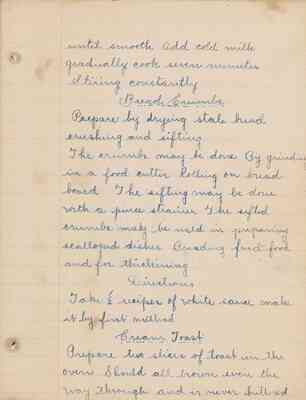 until smooth add cold milk
gradually cook seven minutes
stiring constantly
Bread Crumbs
Prepare by drying stale bread
crushing and sifting
The crumbs may be done By grinding
in a food cutter Rolling on bread
board The sifting may be done
with a puree strainer The sifted
crumbs may be used in preparing
scalloped dishes Breading fried food
and for thickening
Directions
Take ½ recipes of white sauce make
it by first method
Cream Toast
Prepare two slices of toast in the
oven Should all brown even the
way through and is never